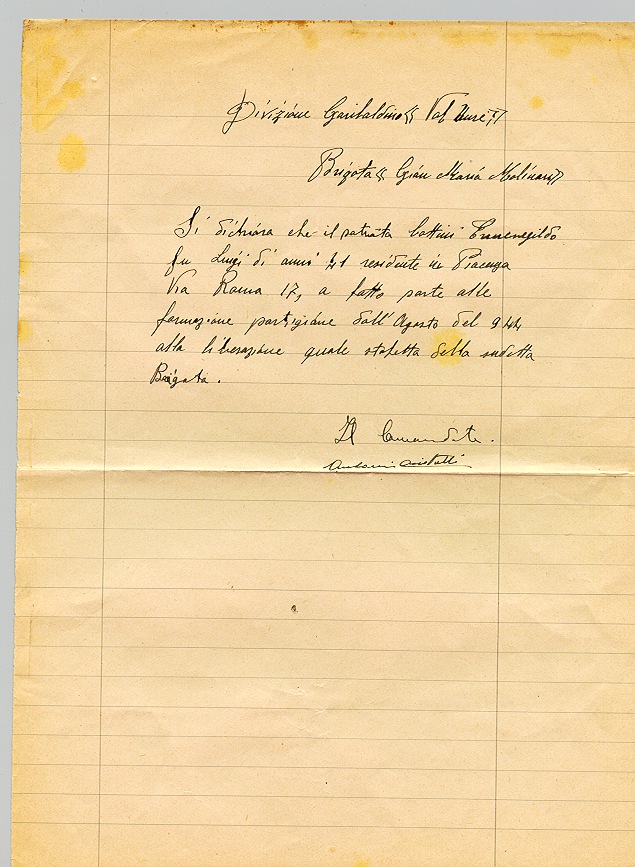 Divizione Garibaldina « Val Nure »
Brigata « Gian Maria Molinari »
Si dichiara che il patriota Cattini Ermenegildo
fu Luigi di anni 41 residente in Piacenza
Via Roma 17, a fatto parte alle
formazione partigiane dall'Agosto del 944
alla liberazione quale stafetta della sudetta
Brigata.
Il Comandate.